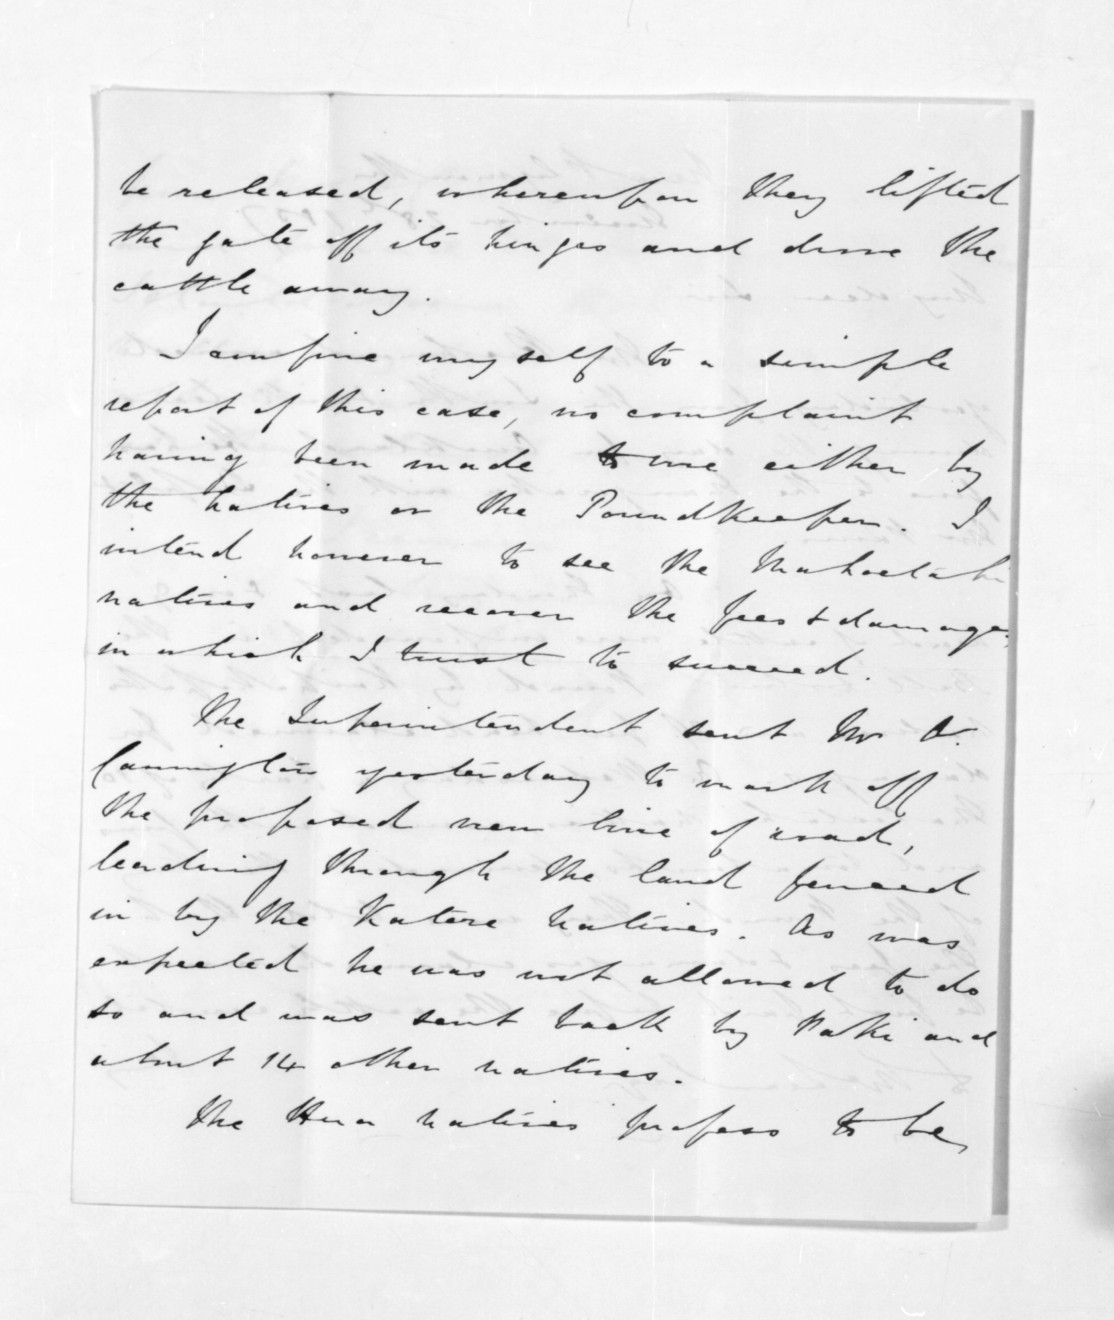 be released, whereupon they lifted
the gate off its hinges and drove the
cattle away.
I confine myself to a simple
report of this case, no complaint
having been made to me either by
the natives or the Poundkeeper. I
intend however to see the Mahoetahi
natives and recover the fees & damages,
in which I trust to succeed.
The Superintendent sent Mr O.
Carrington yesterday to mark off
the proposed new line of road,
leading through the land fenced
in by the Katere natives. As was
expected he was not allowed to do
so and was sent back by and
about 14 other natives.
The Hua natives profess to be,